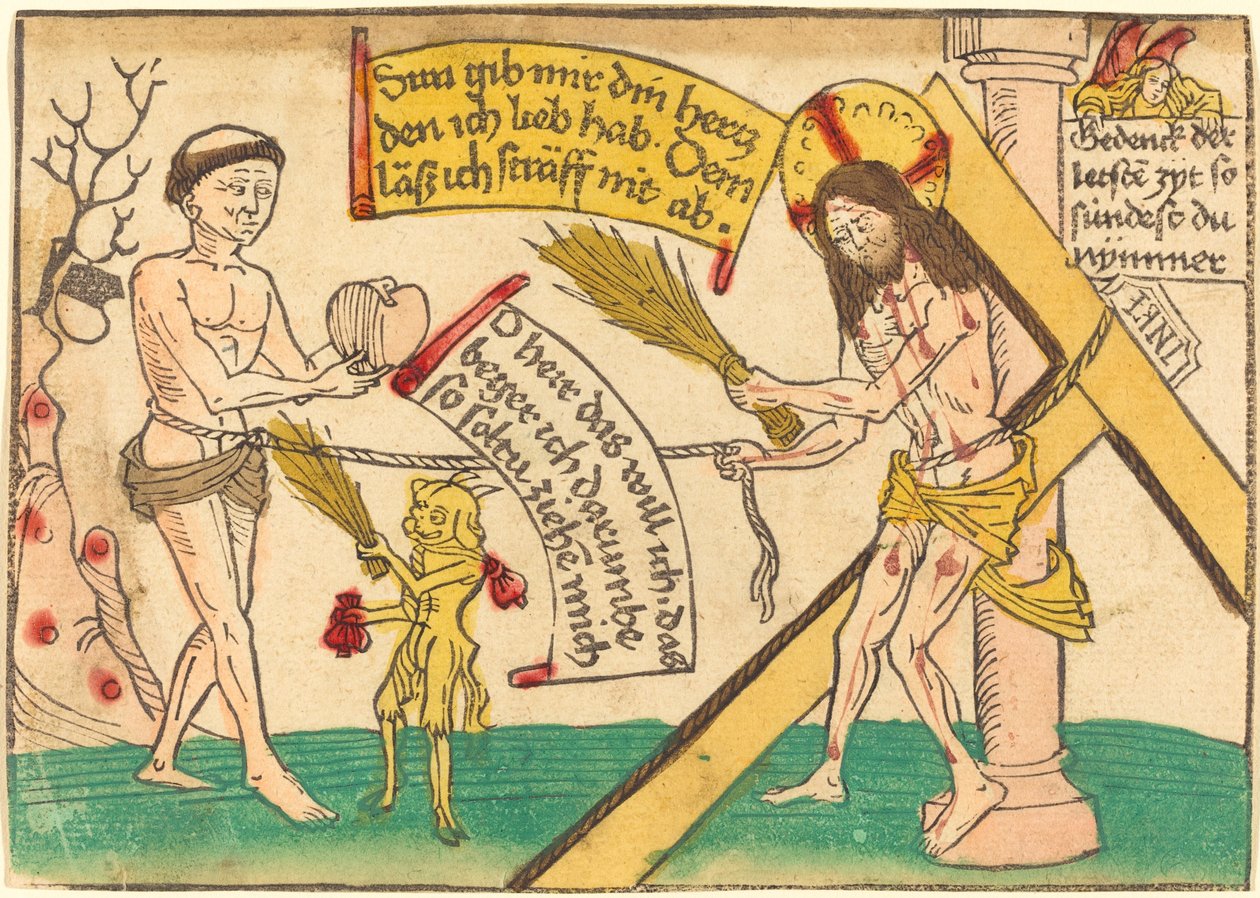 Sun gib mir din hertz
den ich lieb hab. Dem
läsz ich sträff nit ab.
O herr das will ich. das
beger ich darumbe
so soltu ziehē mich
Gedenck der
letstē zyt so
sündest du
nÿmmer
INRI